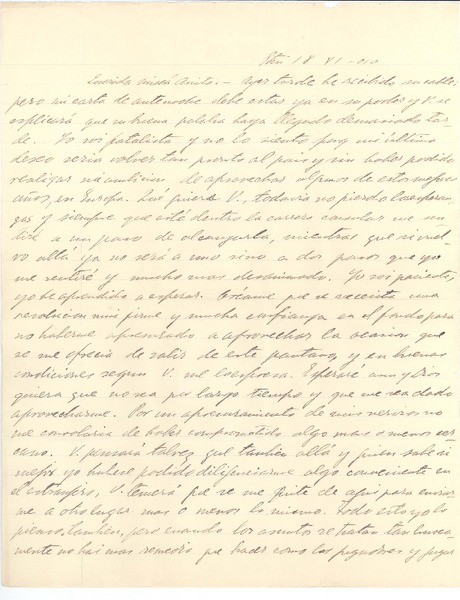 18 VI-010
Querida misiá Anita.- Ayer tarde he recibido su cable,
pero mi carta de antenoche debe estar ya en su poder y V. se
esplicará que su buena palabra haya llegado demasiado tar-
de. Yo soi fatalista y no lo siento porq mi último
deseo seria volver tan pronto al pais y sin haber podido
realizar mi ambicion de aprovechar algunos de estos mejores
años, en Europa. Qué quiere V., todavia no pierdo la esperan-
za y siempre que esté dentro la carrera consular me sen-
tiré a un paso de alcanzarla, mientras que si vuel-
vo allá ya no será a uno sino a dos pasos que yo
me sentiré y mucho mas desanimado. Yo soi paciente,
yo he aprendido a esperar. Créame que se necesita una
resolucion mui firme y mucha confianza en el fondo para
no haberme apresurado a aprovechar la ocasion que
se me ofrecia de salir de este pantano, y en buenas
condiciones segun V. me lo espresa. Esperaré aun y Dios
quiera que no sea por largo tiempo y que me sea dado
aprovecharme. Por un apresuramiento de mis nervios no
me consolaria de haber comprometido algo mas o menos cer-
cano. V. pensará talvez que tambien allá y quien sabe si
mejor yo hubiese podido dilijenciarme algo conveniente en
el estranjero, V. temerá que se me quite de aqui para enviar
me a otro lugar mas o menos lo mismo. Todo esto yo lo
pienso, tambien, pero cuando los asuntos se tratan tan
mente no hai mas remedio que hacer como los jugadores y jugar